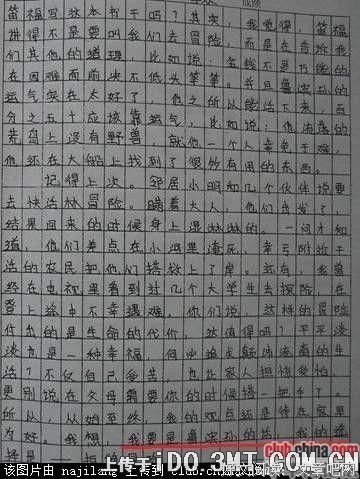 笛福写这本书干吗?其实,我觉得,笛福
讲得不是要叫我们去冒险,而是在告诉我
们其他的道理,比如说:金钱不是万能的
在困难面前决不低头等等。并且鲁滨孙的
运气实在太好了,他之所以能活下来,百
分之五十应该靠运气,比如说:他流落的
荒岛上没有野兽,就他一个人幸免于难,
他还在大船上找到了很多有用的东西。
记得上次。邻居小明和几个伙伴说要
去快活林冒险。瞒着大人,他们出发了,
结果回来的时候身上湿淋淋的。一问才知
道,他们差点在小河里淹死,幸亏附近干
活的农民把他们搭救上了岸。还有,我曾
经在电视里看到过几个大学生去探险,在
登上途中不幸遇难。你们说,这样的冒险
付出的是生命的代价,这值得吗?平平淡
淡也是一种幸福,何必追求颠沛流离的生
活?不仅自己受苦,也让家人担惊受怕,
更别说在父母需要你的时候搭一把手了。
所以,从始至终,我的观点还是待在家里
为好。我想,我要是鲁滨孙的话,我的选
择是
club.china.com
上传于iDO.3MT.COM.CN
该图片由 najilang 上传到 club.ch